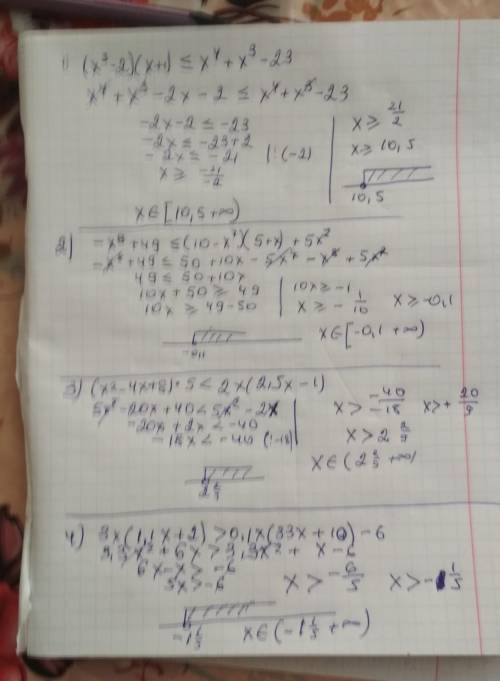 1) (x³-2)(x+1) ≤ x⁴+x³-23
x⁴+x³-2x-2 ≤ x⁴+x³-23
-2x-2 ≤ -23
-2x ≤ -23+2
-2x ≤ -21 |:(-2)
x ≥ -21/-2
x ≥ 21/2
x ≥ 10,5
10,5
x∈[10,5 +∞)
2) -x⁴+49 ≤ (10-x⁴)(5+x)+5x²
49 ≤ 50+10x
10x+50 ≥ 49
10x ≥ 49-50
10x ≥ -1
x ≥ -1/10 x ≥ -0,1
-0,1
x∈[-0,1 +∞)
3) (x²-4x+8)·5 < 2x(2,5x-1)
5x²-20x+40 < 5x²-2x
-20x+2x < -40
-18x < -40 (:-18)
x > -40/-18 x > + 20/9
x > 2 2/9
2 2/9
x∈(2 2/9 +∞)
4) 3x(1,1x+2) > 0,1x(33x+10)-6
3,3x²+6x > 3,3x²+x-6
6x-x > -6
5x > -6
x > -6/5 x > -1 1/5
-1 1/5
x∈(-1 1/5 +∞)